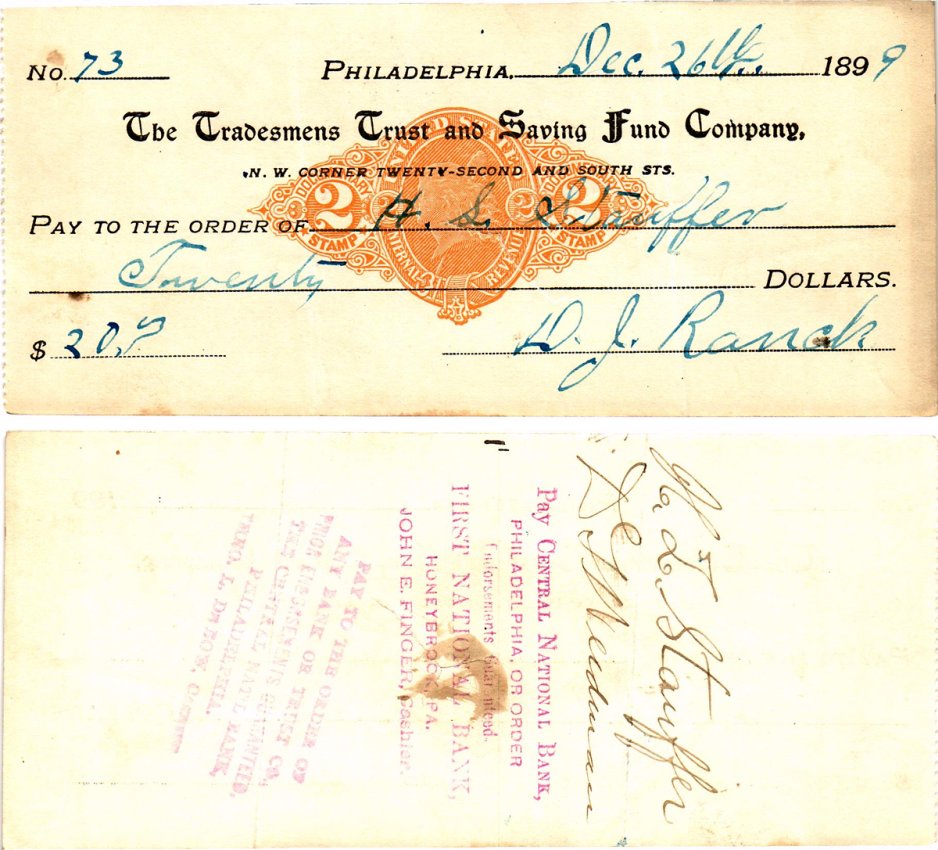 No. 73 PHILADELPHIA, Dec. 26th. 1899
The Tradesmens Trust and Saving Fund Company,
N. W. CORNER TWENTY-SECOND AND SOUTH STS.
PAY TO THE ORDER OF H. L. Stauffer
Twenty DOLLARS.
$ 20,
D. J. Ranck
UNITED STATES
DOCUMENTARY
2 2
STAMP STAMP
INTERNAL REVENUE
H. L. Stauffer
Pay CENTRAL NATIONAL BANK,
PHILADELPHIA, OR ORDER
Endorsements Guaranteed.
FIRST NATIONAL BANK,
HONEYBROOK, PA.
JOHN E. FINGER, Cashier.
PAY TO THE ORDER OF
ANY BANK OR TRUST CO.
PRIOR ENDORSEMENTS GUARANTEED,
THE CENTRAL NAT'L BANK,
PHILADELPHIA.